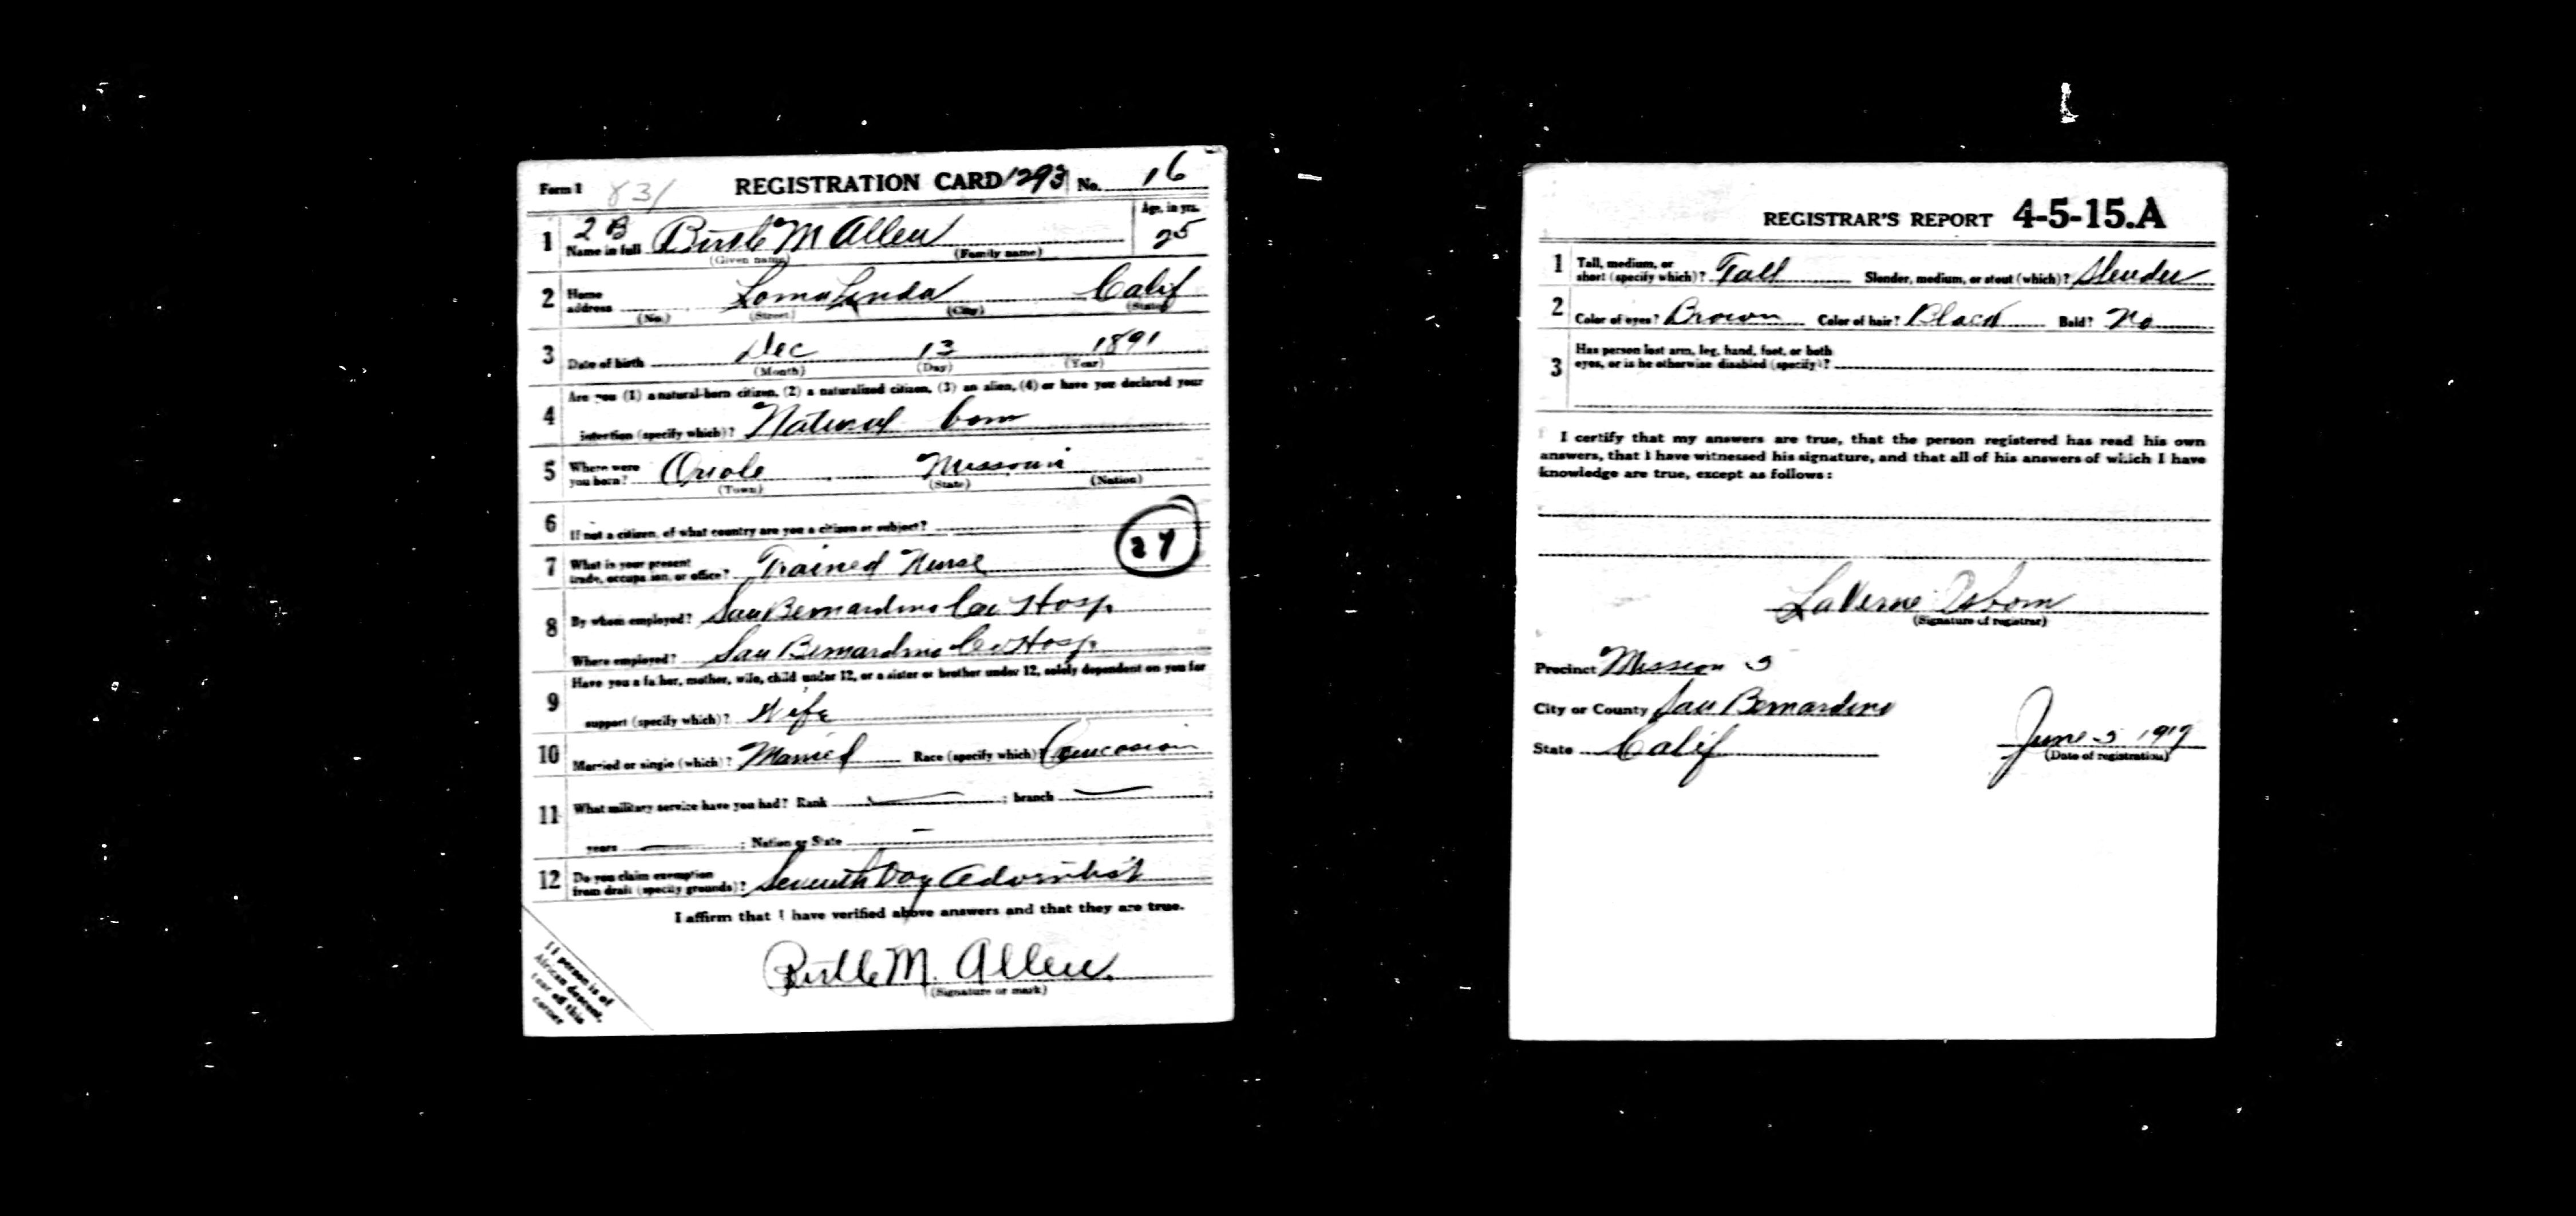 Form 1 831 REGISTRATION CARD 1293 No. 16
1 2 B Name in full Birtle M Allen Age, in yrs. 25
(Given name) (Family name)
2 Home address Loma Linda Calif
(No.) (Street) (City) (State)
3 Date of birth Dec 13 1891
(Month) (Day) (Year)
4 Are you (1) a natural-born citizen, (2) a naturalized citizen, (3) an alien, (4) or have you declared your
intention (specify which)? Natural born
5 Where were you born? Oriole Missouri
(Town) (State) (Nation)
6 If not a citizen, of what country are you a citizen or subject?
7 What is your present trade, occupation, or office? Trained Nurse 24
8 By whom employed? San Bernardino Co Hosp.
Where employed? San Bernardino Co Hosp.
9 Have you a father, mother, wife, child under 12, or a sister or brother under 12, solely dependent on you for
support (specify which)? Wife
10 Married or single (which)? Married Race (specify which)? Caucasian
11 What military service have you had? Rank ; branch ;
years ; Nation or State
12 Do you claim exemption from draft (specify grounds)? Seventh Day Adventist
I affirm that I have verified above answers and that they are true.
Birtle M. Allen
(Signature or mark)
If person is of
African descent,
tear off this
corner
REGISTRAR'S REPORT 4-5-15.A
1 Tall, medium, or short (specify which)? Tall Slender, medium, or stout (which)? Slender
2 Color of eyes? Brown Color of hair? Black Bald? No
3 Has person lost arm, leg, hand, foot, or both
eyes, or is he otherwise disabled (specify)?
I certify that my answers are true, that the person registered has read his own
answers, that I have witnessed his signature, and that all of his answers of which I have
knowledge are true, except as follows:
LaVerne Osborn
(Signature of registrar)
Precinct Mission 5
City or County San Bernardino
State Calif June 5 1917
(Date of registration)